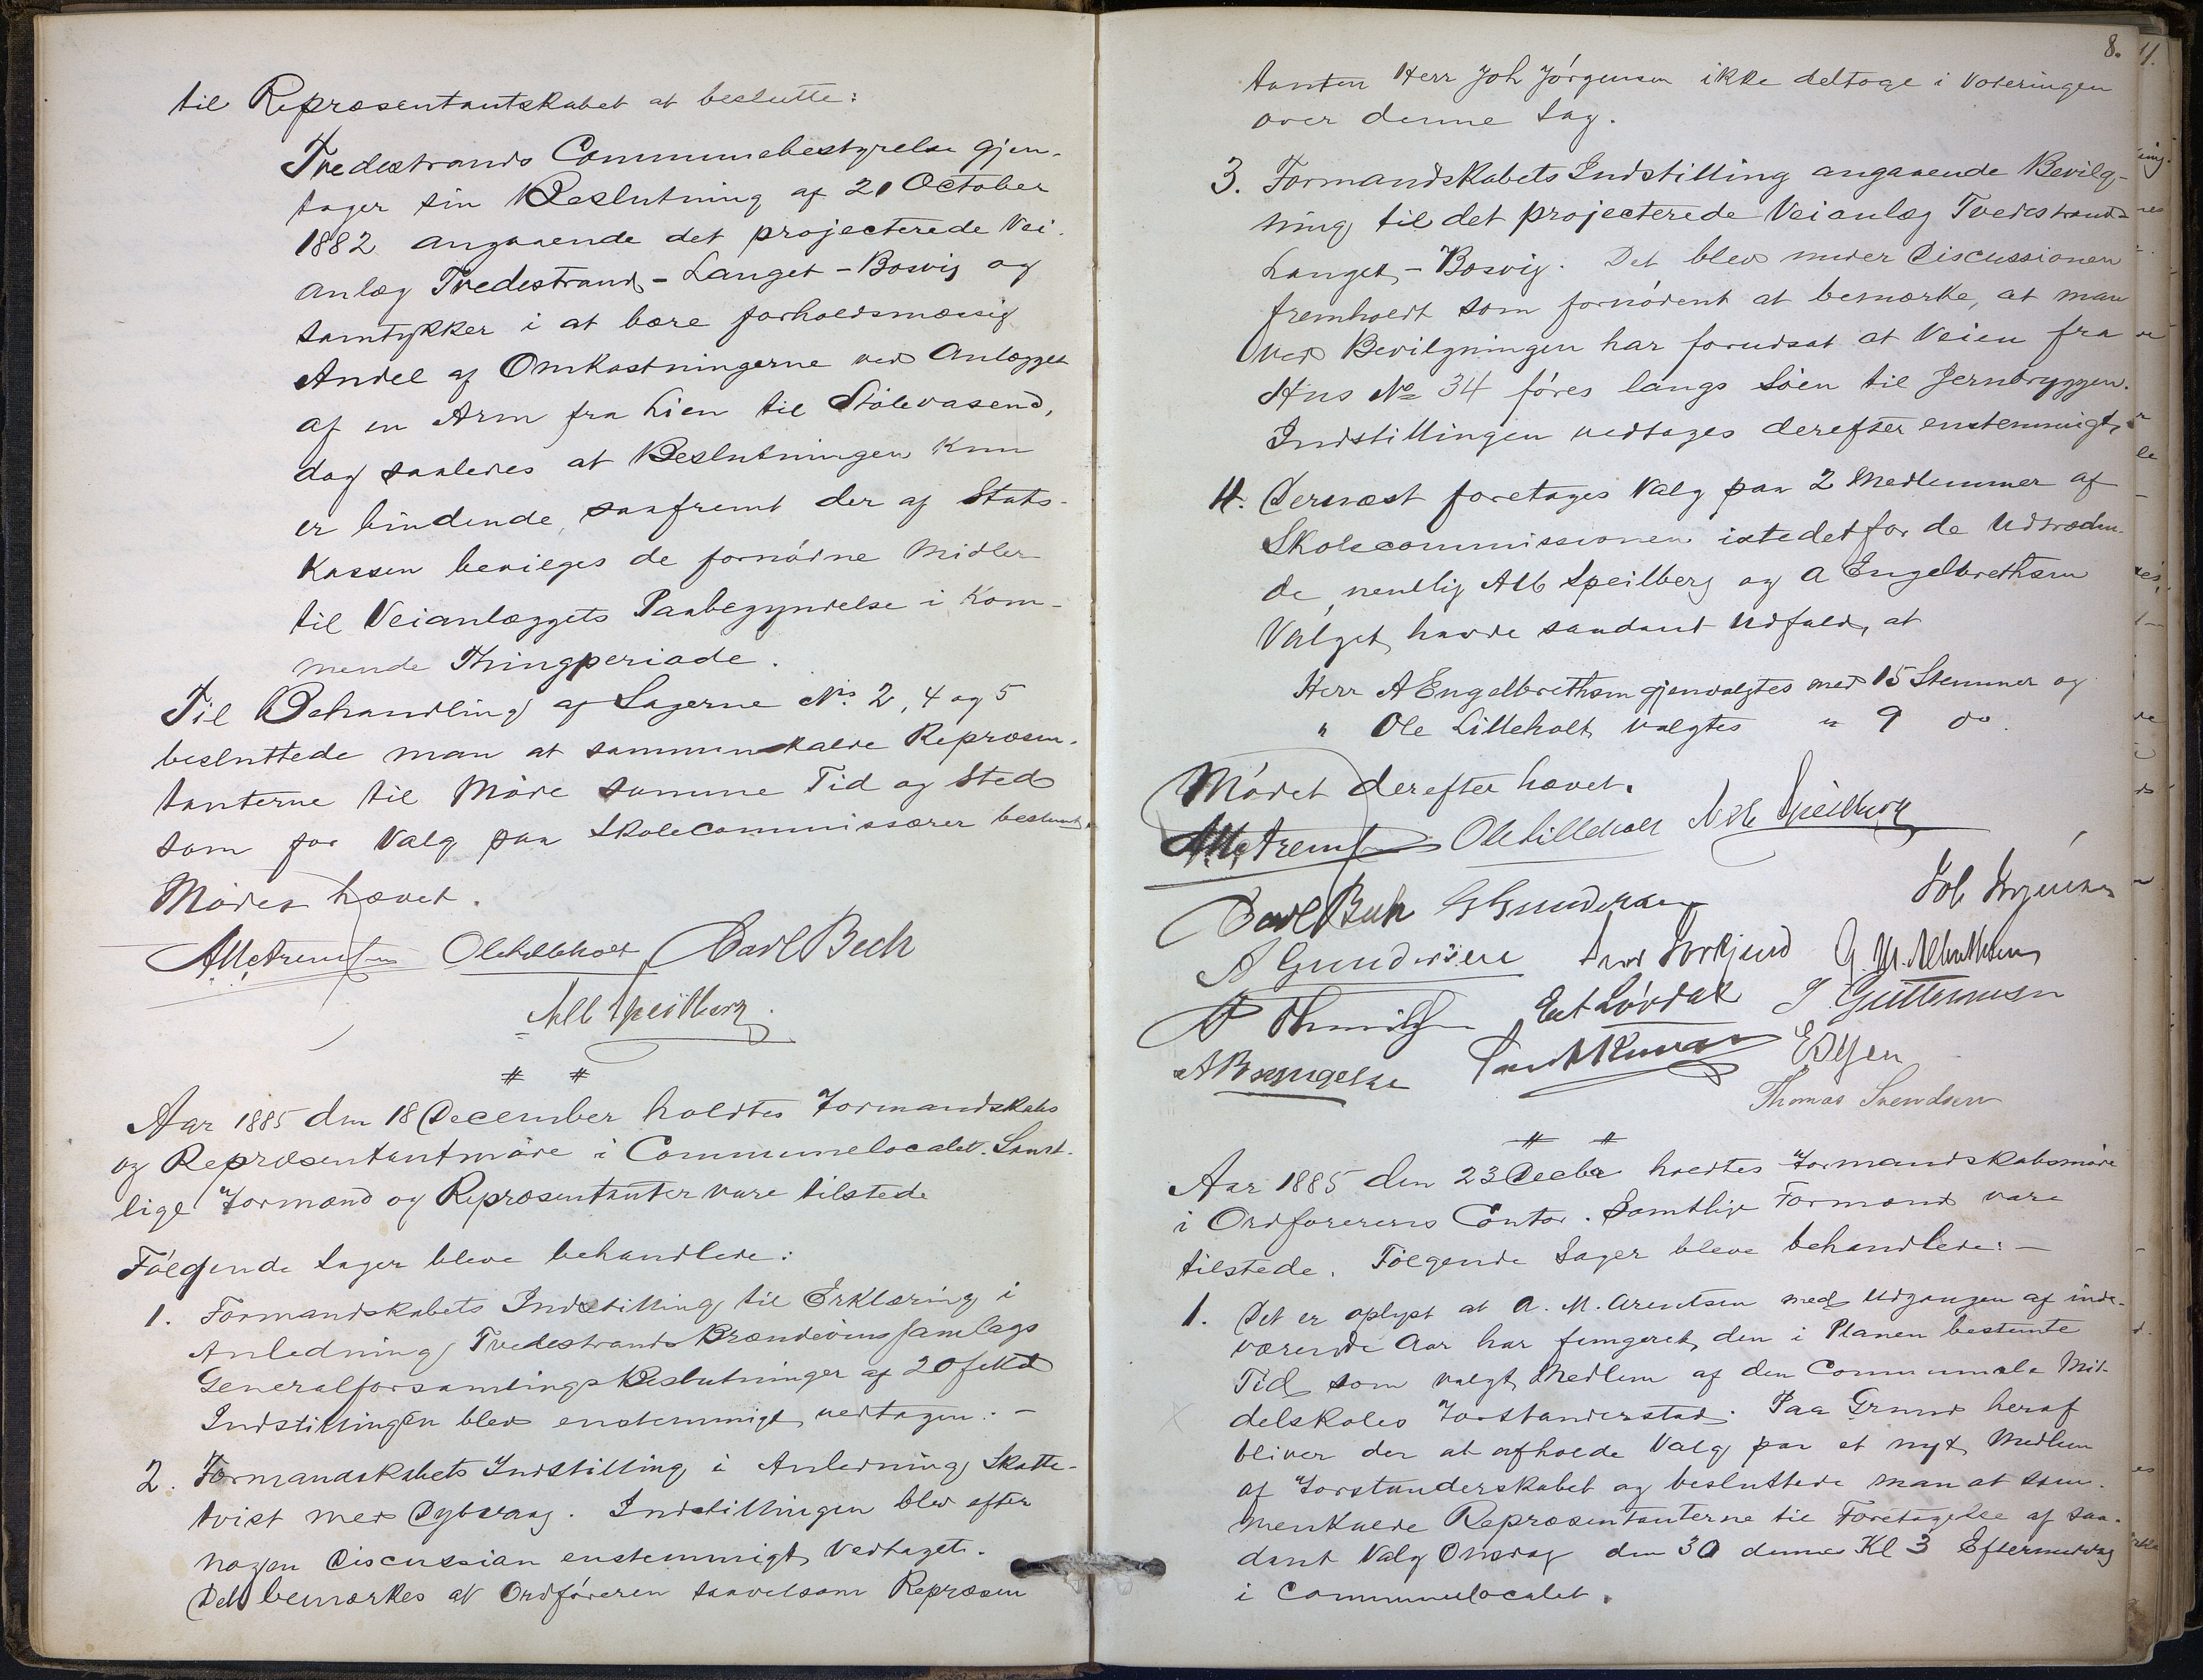 til Repræsentantskabet at beslutte:
Tvedestrands Communebestyrelse gjen-
tager sin Beslutning af 21 October
1882 angaaende det projecterede Vei-
anlæg Tvedestrand - Langet - Bosvig og
samtykker i at bære forholdsmæssig
Andel af Omkostningerne ved Anlægget
af en Arm fra Lien til Stølevasend,
dog saaledes at Beslutningen kun
er bindende, saafremt der af Stats-
kassen bevilges de fornødne Midler
til Veianlæggets Paabegyndelse i kom-
mende Thingperiode.
Til Behandling af Sagerne No. 2, 4 og 5
besluttede man at sammenkalde Repræsen-
tanterne til Møde samme Tid og Sted
som for Valg paa Skolecommissærer bestemt.
Mødet hævet.
A M Arentsen Ole Lilleholt Carl Bech
Alb Speilberg
# #
Aar 1885 den 18 December holdtes Formandskabs
og Repræsentantmøde i Communelocalet. Samt-
lige Formænd og Repræsentanter vare tilstede
Følgende Sager bleve behandlede:
1. Formandskabets Indstilling til Erklæring i
Anledning Tvedestrands Brændevinssamlags
Generalforsamlings Beslutninger af 20
Indstillingen blev enstemmigt vedtagen. -
2. Formandskabets Indstilling i Anledning Skatte-
tvist med Dybvaag. Indstillingen blev efter
nogen Discussion enstemmigt Vedtaget.
Det bemærkes at Ordføreren saavelsom Repræsen
8.
4.
tanten Herr Joh Jørgensen ikke deltoge i Voteringen
over denne Sag.
3. Formandskabets Indstilling angaaende Bevilg-
ning til det projecterede Veianlæg Tvedestrand-
Langet - Bosvig. Det blev under Discussionen
fremholdt som fornødent at bemærke, at man
ved Bevilgningen har forudsat at Veien fra
Hus No 34 føres langs Søen til Jernbryggen.
Indstillingen vedtages derefter enstemmigt.
4. Dernæst foretages Valg paa 2 Medlemmer af
Skolecommissionen istedetfor de Udtræden-
de, nemlig Alb Speilberg og A Engelbrethsen
Valget havde saadant Udfald, at
Herr A Engelbrethsen gjenvalgtes med 15 Stemmer og
" Ole Lilleholt valgtes " 9 do.
Mødet derefter hævet.
A M Arentsen Ole Lilleholt Alb Speilberg
Carl Bech G Gundersen Joh Jørgensen
A Gundersen
Thomas Svendsen
# #
Aar 1885 den 23 Decbr holdtes Formandskabsmøde
i Ordførerens Contor. Samtlige Formænd vare
tilstede. Følgende Sager bleve behandlede: -
1. Det er oplyst at A. M. Arentsen med Udgangen af inde-
værende Aar har fungeret den i Planen bestemte
Tid som valgt Medlem af den Communale Mid-
delskoles Forstanderskab. Paa Grund heraf
bliver der at afholde Valg paa et nyt Medlem
af Forstanderskabet og besluttede man at sam-
menkalde Repræsentanterne til Foretagelse af saa-
dant Valg Onsdag den 30 dennes Kl 3 Eftermiddag
i Communelocalet.